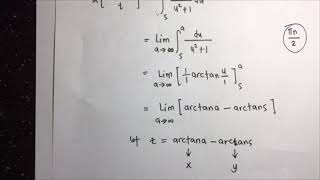 t
s u²+1
= Lim a→∞ ∫ₛᵃ du/u²+1
πn/2
= Lim a→∞ [1/1 arctan u/1]ₛᵃ
= Lim a→∞ [arctan a − arctan s]
let z = arctan a − arctan s
↓ ↓
x y